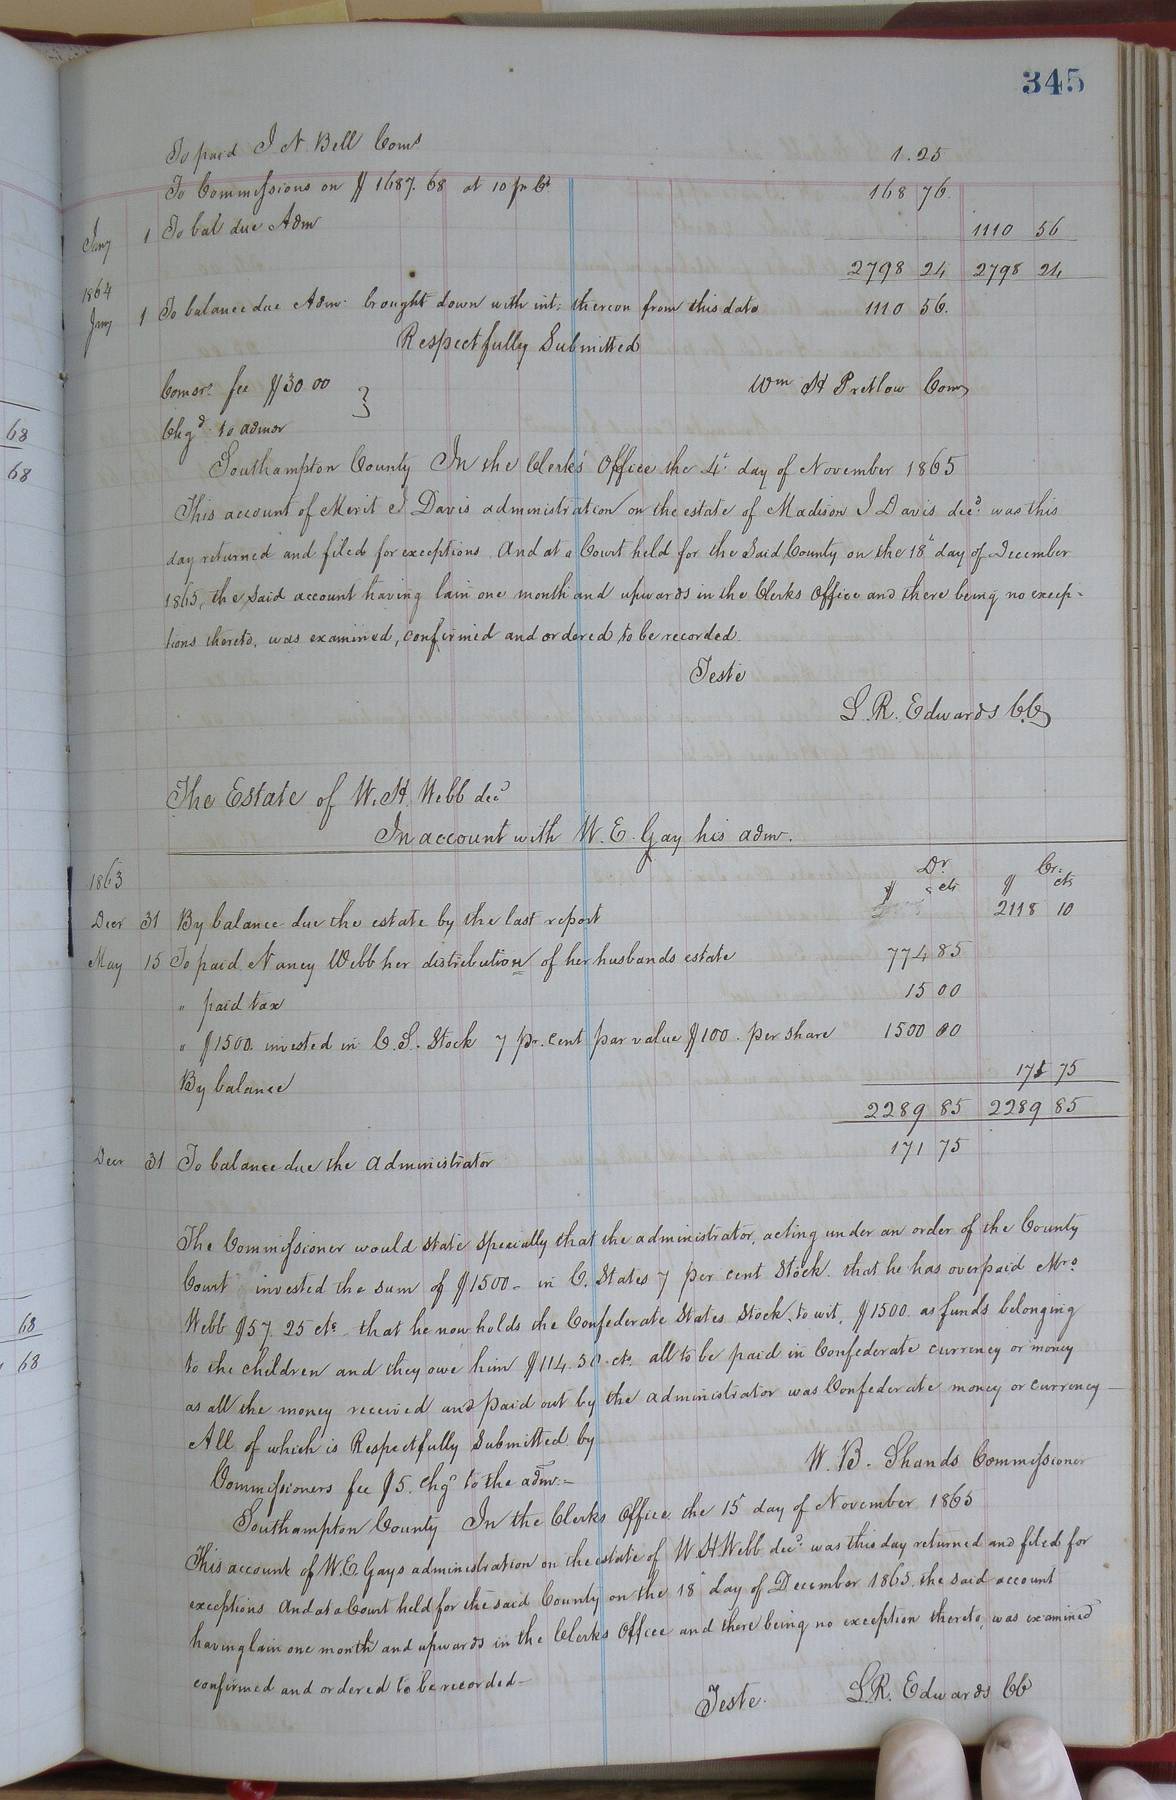 345
To paid J N Bell Coms 1.25
To Commissions on $1687.68 at 10 pr Ct 168 76
Jany 1 To bal due Adm 1110 56
2798 24 2798 24
1864
Jany 1 To balance due Adm. brought down with int. thereon from this date 1110 56.
Respectfully Submitted
Comsrs fee $30 00 } Wm H Pretlow Com
Chgd to admor
Southampton County In the Clerks Office the 4th day of November 1865
This account of Merit J Davis administration on the estate of Madison J Davis decd. was this
day returned and filed for exceptions And at a Court held for the Said County on the 18th day of December
1865, the said account having lain one month and upwards in the Clerks Office and there being no excep-
tions thereto, was examined, confirmed and ordered to be recorded
Teste
L. R. Edwards CC
The Estate of W. H. Webb decd
In account with W. E. Gay his adm.
1863 Dr Cr.
$ cts $ cts
Decr 31 By balance due the estate by the last report 2118 10
May 15 To paid Nancy Webb her distribution of her husbands estate 774 85
" paid tax 15 00
" $1500 invested in C. S. Stock 7 pr. cent par value $100. per share 1500 00
By balance 171 75
2289 85 2289 85
Decr 31 To balance due the Administrator 171 75
The Commissioner would state specially that the administrator, acting under an order of the County
Court invested the sum of $1500 - in C. States 7 per cent Stock. that he has overpaid Mrs
Webb $57.25 cts - that he now holds the Confederate States Stock, to wit, $1500. as funds belonging
to the children and they owe him $114.50 cts. all to be paid in Confederate currency or money
as all the money received and paid out by the administrator was Confederate money or currency -
All of which is Respectfully Submitted by
W. B. Shands Commissioner
Commissioners fee $5. chgd to the adm. -
Southampton County In the Clerks Office the 15th day of November 1865
This account of W. E. Gays administration on the estate of W. H Webb decd. was this day returned and filed for
exceptions And at a Court held for the said County on the 18th day of December 1865. the said account
having lain one month and upwards in the Clerks Office and there being no exception thereto, was examined
confirmed and ordered to be recorded -
Teste. L. R. Edwards CC
68
68
68
68